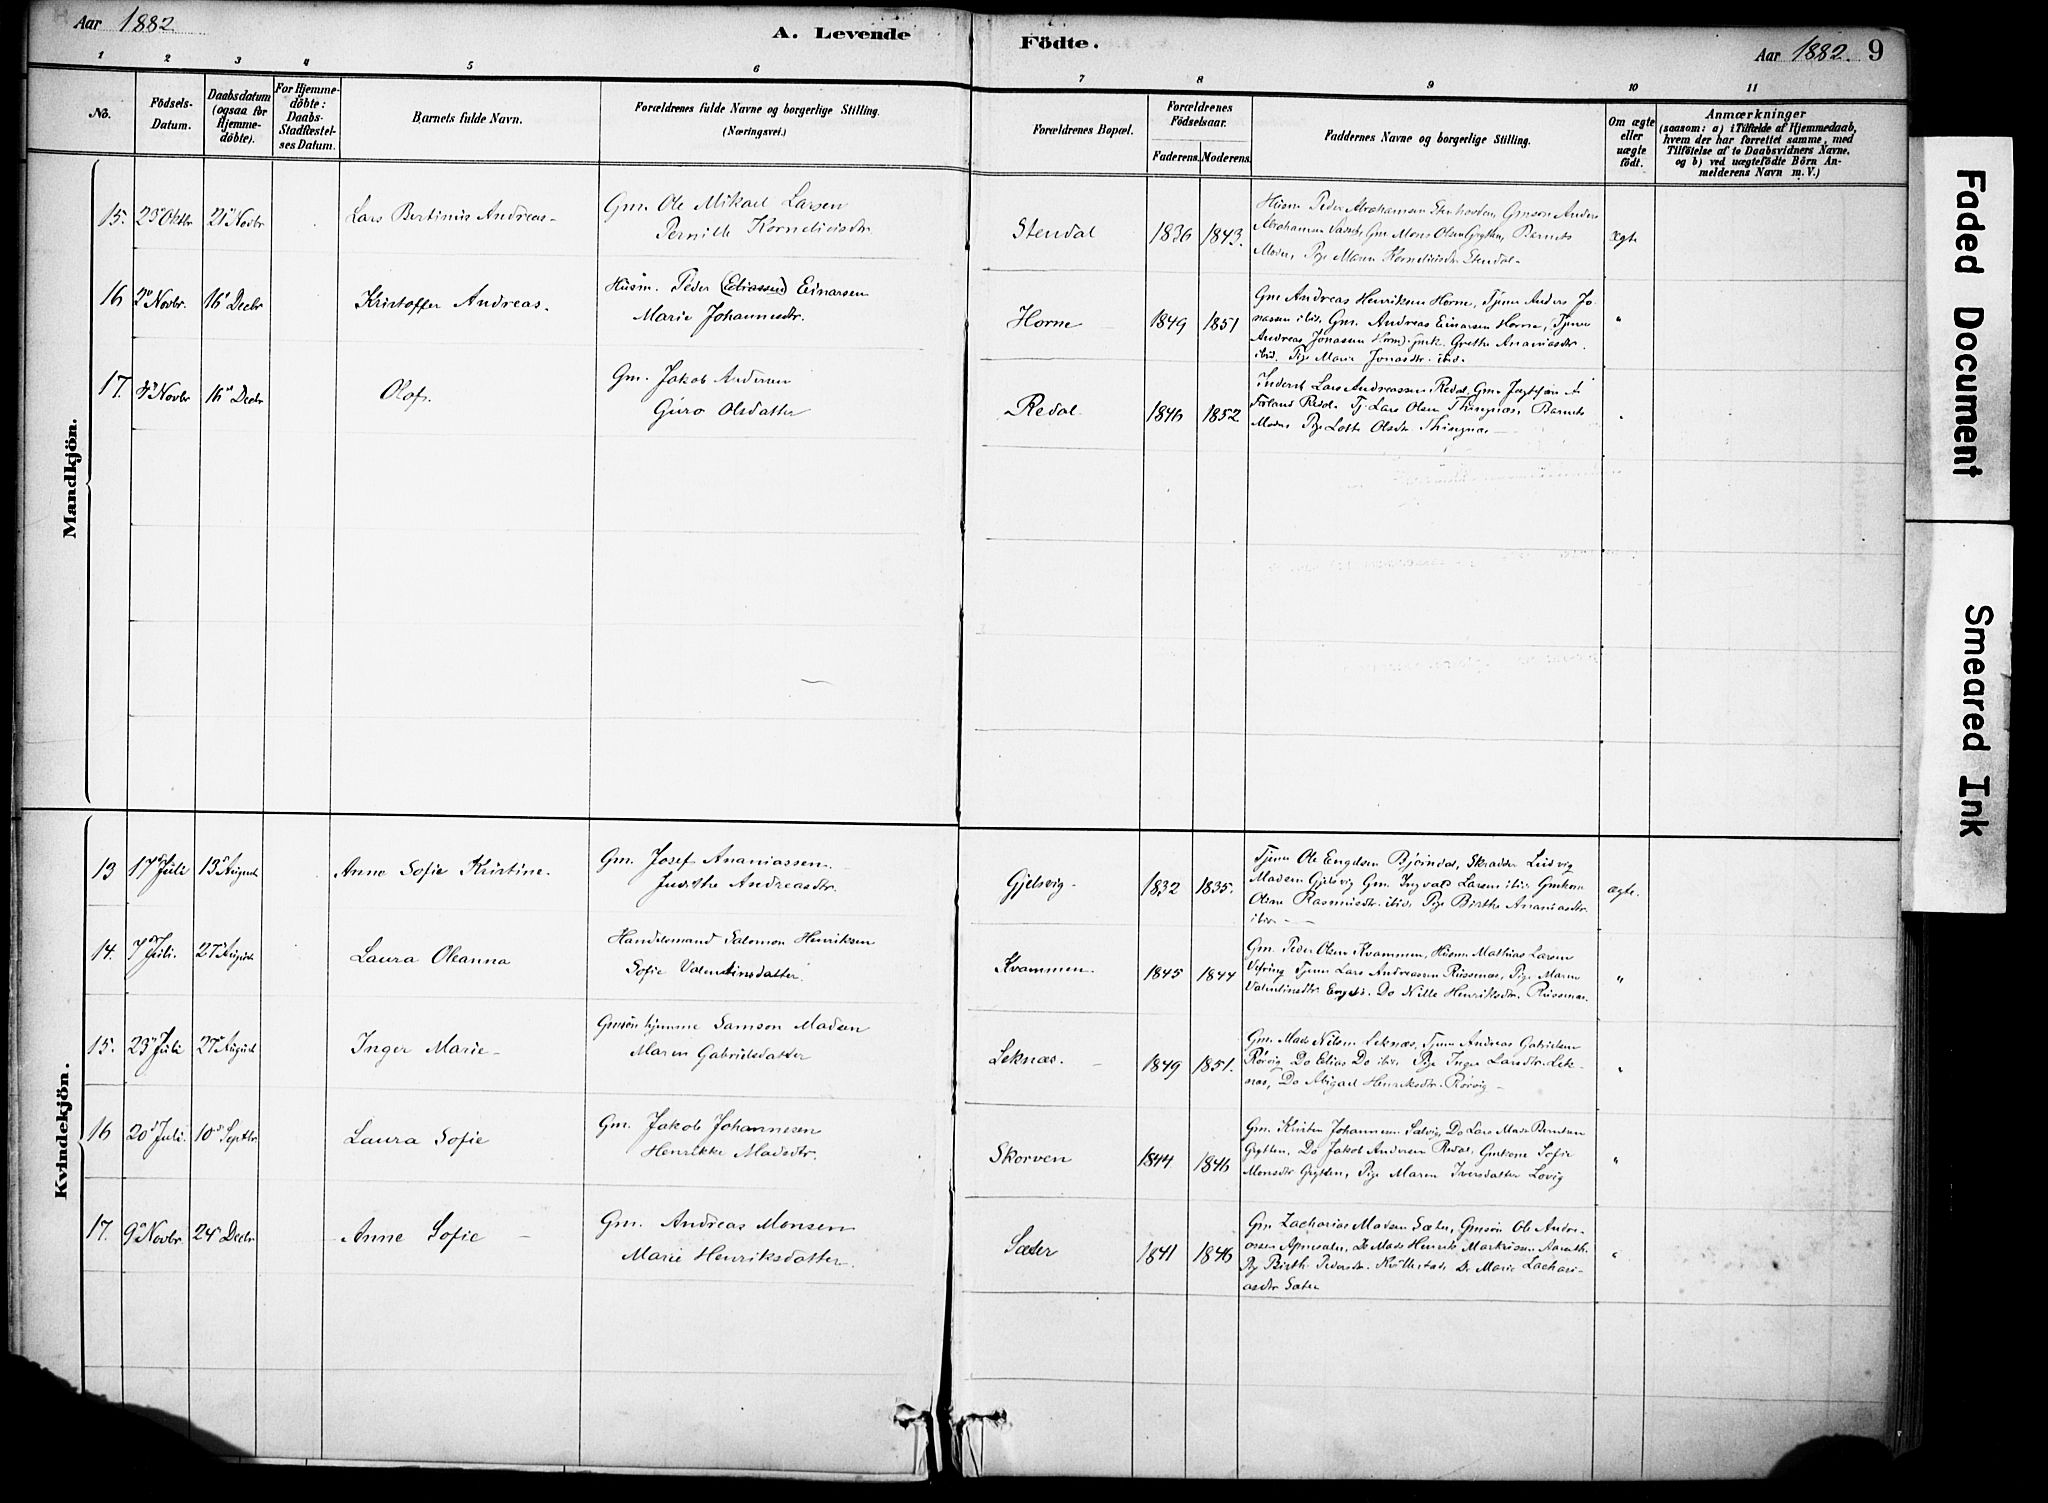 Aar 1882.
A. Levende
Födte.
Aar 1882. 9
1 2 3 4 5 6 7 8 9 10 11
No.
Födsels-
Datum.
Daabsdatum
(ogsaa for
Hjemme-
döbte).
For Hjemme-
döbte:
Daabs-
Stadfæstel-
ses Datum.
Barnets fulde Navn.
Forældrenes fulde Navne og borgerlige Stilling.
(Næringsvei.)
Forældrenes Bopæl.
Forældrenes
Födselsaar.
Faderens. Moderens.
Faddernes Navne og borgerlige Stilling.
Om ægte
eller
uægte
födt.
Anmærkninger
(saasom: a) i Tilfælde af Hjemmedaab,
hvem der har forrettet samme, med
Tilföielse af to Daabsvidners Navne,
og b) ved uægtefödte Börn An-
melderens Navn m. V.)
Mandkjön.
15. 23 Oktbr 21 Novbr
Lars Bertinus Andreas-
Gm. Ole Mikael Larsen
Pernille Korneliusdtr
Stendal
1836 1843.
Husm Peder Abrahamsen Gmsøn Anders
Abrahamsen Gm Mons Olsen Grytten, Barnets
Moder, Pige Maren Korneliusdtr Stendal-
ægte
16 2 Novbr. 16 Decbr
Kristoffer Andreas.
Husm. Peder (Eliassen) Einarsen
Marie Johannesdtr.
Horne
1849 1851
Gm Andreas Henriksen Horne, Tjener Anders Jo-
nassen ibid. Gm. Andreas Einarsen Horne, Tjener
Andreas Jonassen Gmk. Grethe Ananiasdtr.
ibid. Pige Marie Jonasdtr. ibid.
"
17. Novbr 16 Decbr
Olaf.
Gm. Jakob Andersen
Guro Olsdatter
Redal
1846 1852.
Inderst Lars Andreassen Redal, Gm
Redal Tj. Lars Olsen Thingnæs, Barnets
Moder Pige Lotte Olsdtr Thingnæs
"
Kvindekjön.
13 17 Juli 13 August
Anne Sofie Kristine.
Gm. Josef Ananiassen
Judithe Andreasdtr.
Gjelsvig-
1832 1835.
Tjener Ole Engelsen Bjordal, Skradder Ludvig
Madsen Gjelsvig Gm. Ingvald Larsen ibid Gmkone
Oline Rasmusdtr. ibid, Pige Birthe Ananiasdtr.
ibid
ægte.
14. 7 Juli. 27 August.
Laura Oleanna
Handelsmand Salomon Henriksen
Sofie Valentinsdatter
Kvammen.
1845 1844
Gm. Peder Olsen Kvammen, Husm Mathias Larsen
Vefring Tjener Lars Andreassen Russenæs, Pige Maren
Valentinsdtr Do Nille Henriksdtr. Russenæs.
"
15. 23 Juli 27 August
Inger Marie-
Gmsøn hjemme Samson Madsen
Maren Gabrielsdatter
Leknæs.
1849 1851.
Gm. Mads Nilsen Leknæs, Tjener Andreas Gabrielsen
Rørvig Do Elias Do ibid. Pige Inger Larsdtr. Lek-
næs, Do Abigael Henriksdtr. Rørvig-
"
16 20 Juli. 10 Septbr.
Laura Sofie
Gm. Jakob Johannesen
Henrikke Madsdtr.
Skorven
1844 1846
Gm. Kristen Johannesen Do Lars Mads Berntsen
Grytten, Do Jakob Andersen Redal, Gmkone Sofie
Monsdtr Grytten, Pige Maren Iversdatter Løvig
"
17. 9 Novbr. 24 Decbr
Anne Sofie
Gm. Andreas Monsen
Marie Henriksdatter.
Sæter
1841 1846
Gm Zacharias Madsen Sæter, Gmsøn Ole Andre-
assen Do Mads Henrik Markussen
Pige Birthe Pedersdtr. Do Marie Zachari-
asdtr Sæter
"
Faded Document
Smeared Ink